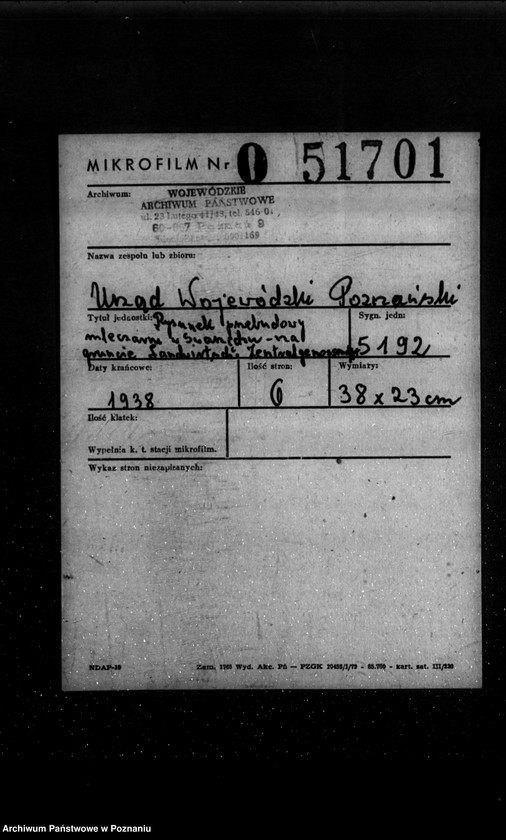 MIKROFILM Nr 0 51701
Archiwum: WOJEWÓDZKIE
ARCHIWUM PAŃSTWOWE
ul. 23 Lutego 41/43, tel. 546-01,
60-967 Poznań 9
Nazwa zespołu lub zbioru:
Urząd Wojewódzki Poznański
Tytuł jednostki: Rysunek przebudowy
mleczarni w Swarzędzu - na
gruncie Landwirtsch. Zentralgenossensch.
Sygn. jedn:
5192
Daty krańcowe:
1938
Ilość stron:
6
Wymiary:
38 x 23 cm
Ilość klatek:
Wypełnia k. t. stacji mikrofilm.
Wykaz stron niezapisanych:
NDAP-20
Zam. Wyd. Akc. Pń — PZGK
Archiwum Państwowe w Poznaniu